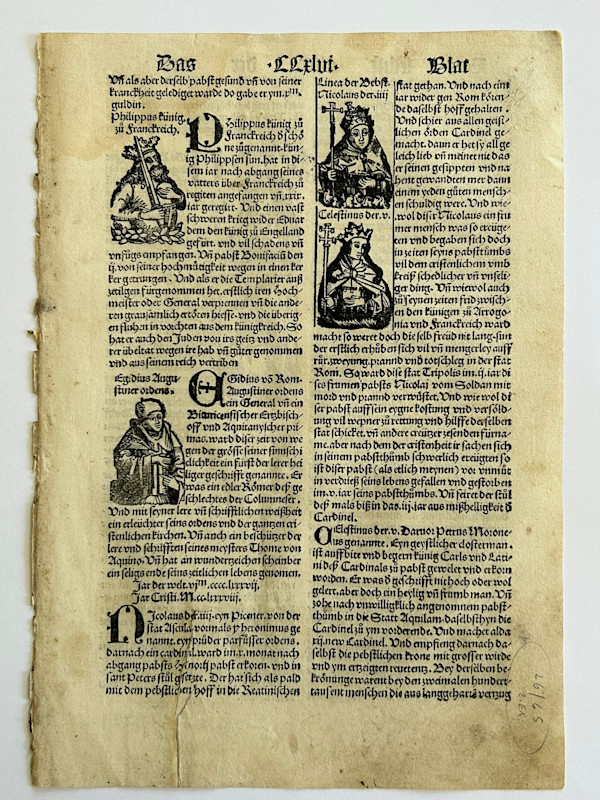 Das ·CCxlvi· Blat
Vñ als aber derselb pabst gesund vñ von seiner
kranckheit gelediget warde do gabe er ym .x.m.
guldin.
Philippus künig
zů Franckreich.
Philippus künig zů
Franckreich ð schö
ne zůgenannt. kün-
ig Philippsen sun. hat in di-
sem iar nach abgang seines
vatters über Franckreich zů
regiren angefangen vñ .xxix.
iar geregirt. Vnd einen vast
schweren krieg wider Eduar
dem den künig zů Engelland
gefürt. vnd vil schadens vñ
vnfůgs empfangen. Vñ pabst Bonifaciũ den
.ij. von seiner hochmůtikeit wegen in einen ker
ker getrungen. Vnd als er die Templarier auß
zetilgen fürgenommen het. erstlich iren Hoch-
meister oder General verprennen vñ die ande-
ren grausamlich ertöten hiesse. vnd die überig-
en fluhen in vorchten aus dem künigkreich. So
hat er auch den Juden vm irs geitz vnd ande-
rer übeltat wegen ire hab vñ gůter genommen
vnd aus seinem reich vertriben
Egidius Augu-
stiner ordens.
EGidius võ Rom.
Augustiner ordens
ein General vñ ein
Bituricensischer Ertzbisch-
off vnd Aquitanyscher pri-
mas. ward diser zeit von we-
gen der grösse seiner sinnschi
cklichkeit ein fürst der lerer hei
liger geschrifft genannte. Er
was ein edler Römer deß ge
schlechtes der Columneser.
Vnd mit seyner lere vñ schrifftlichen weißheit
ein erleüchter seines ordens vnd der gantzen cri-
stenlichen kirchen. Vñ auch ein beschützer der
lere vnd schrifften seines meysters Thome von
Aquino. Vñ hat an wunderzeichen scheinber
ein seligs ende seins zeitlichen lebens genomen.
Jar der welt .vi.m. cccc. lxxxvij.
Jar Cristi. M. cc. lxxxviij.
NJcolaus der .iiij. eyn Picener. von der
stat Ascula. vormals yheronimus ge
nannt. eyn průder parfůsser ordens.
darnach ein cardinal. ward im .x. monat nach
abgang pabsts Honorij pabst erkoren. vnd in
sant Peters stůl gesetzt. Der hat sich als pald
mit dem pebstlichen hoff in die Reatinischen
Linea der Bebst.
Nicolaus der .iiij
Celestinus der .v.
stat gethan. Vnd nach eim
iar wider gen Rom kõren-
de daselbst hoff gehalten.
Vnd schier aus allen geist-
lichen õrden Cardinel ge-
macht. dann er het sy all ge
leich lieb vñ meinet nie das
er seinen gesippten vnd na
hent gewandten mer dann
einem yeden gůten mensch-
en schuldig were. Vnd wie-
wol diser Nicolaus ein fru
mer mensch was so erzüge-
ten vnd begaben sich doch
in zeiten seyns pabstumbs
vil dem cristenlichem vmb
kreiß schedlicher vñ vnseli-
ger ding. Vñ wiewol auch
zů seynen zeiten frid zwisch-
en den künigen zů Arrogo-
nia vnd Franckreich ward
macht so weret doch die selb freüd nit lang. sun-
der erstlich erhůben sich vil vñ mengerley auff
růr. zweyung. prannd vnd totschleg in der stat
Rom. So ward dise stat Tripolis im .ij. iar di
ses frumen pabsts Nicolai vom Soldan mit
mord vnd prannd verwüstet. Vnd wie wol di
ser pabst auff sein eygne kostung vnd versöld-
ung vil wepner zů rettung vnd hilffe derselben
stat schicket. vñ andere creützer zesenden fürna-
me. aber nach dem der cristenheit ir sachen sich
in seinem pabstthůmb schwerlich erzeügten so
ist diser pabst (als etlich meynen) vor vnmůt
in verdrieß seins lebens gefallen vnd gestorben
im .v. iar seins pabstthůmbs. Vñ feiret der stůl
deß mals biß in das .ij. iar aus mißhelligkeit ð
Cardinel.
CElestinus der .v. Daruor Petrus Morone-
us genannte. Eyn geystlicher closterman.
ist auff bite vnd begern künig Carls vnd Lati-
ni deß Cardinals zů pabst gewelet vnd erkorn
worden. Er was ð geschrifft nit hoch oder wol
gelert. aber doch ein heylig vñ frumb man. Vñ
zohe nach vnwilligklich angenomnem pabst-
thůmb in die Statt Aquilam. daselbsthyn die
Cardinel zů ym vorderende. Vnd machet alda
.xij. new Cardinel. Vnd empfieng darnach da-
selbst die pebstlichen krone mit grosser wirde
vnd ym erzeigten reuerentz. Bey derselben be-
krönunge warent bey den zweimalen hundert-
tausent menschen die aus langgeharts verzug